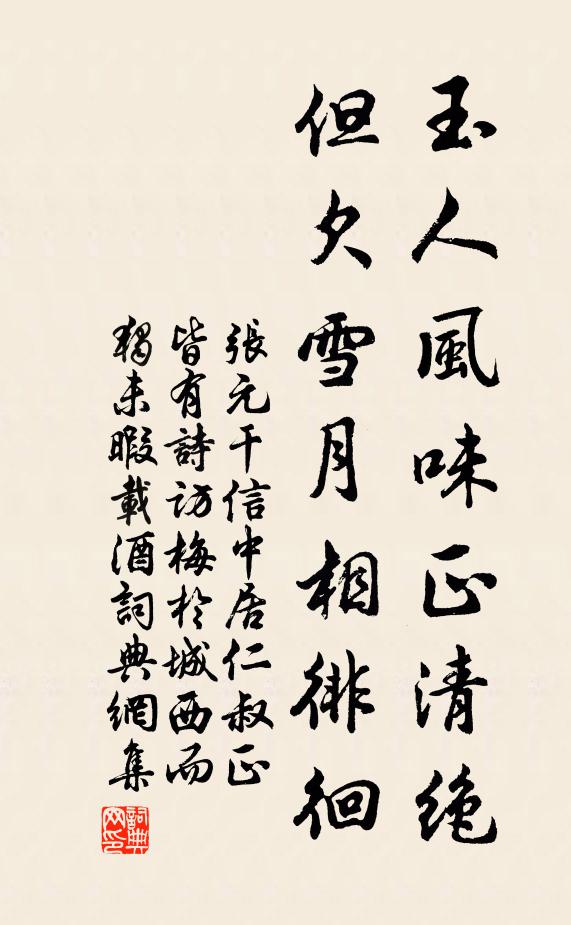 玉人風味正清絶
但欠雪月相徘徊
張元干信中居仁叔正
皆有詩訪梅於城西而
獨未暇載酒詞典網集
詞典
网印